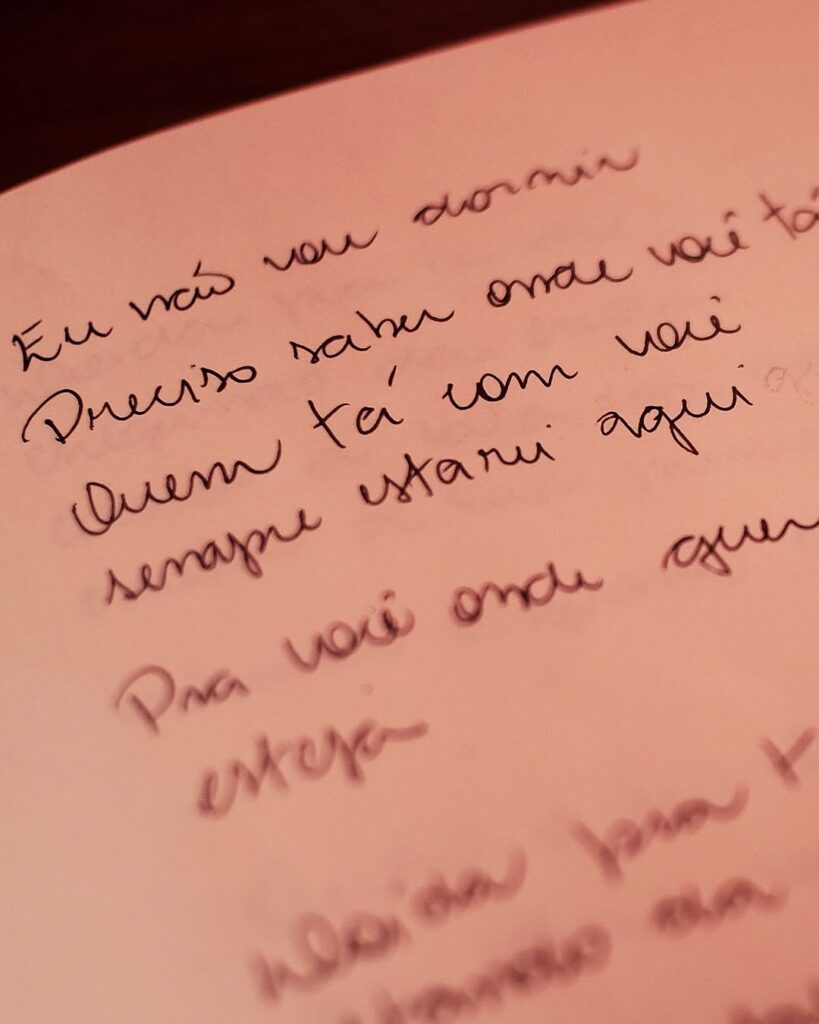 Eu não vou dormir
Preciso saber onde você tá
Quem tá com você
sempre estarei aqui
Pra você onde quer
esteja
para